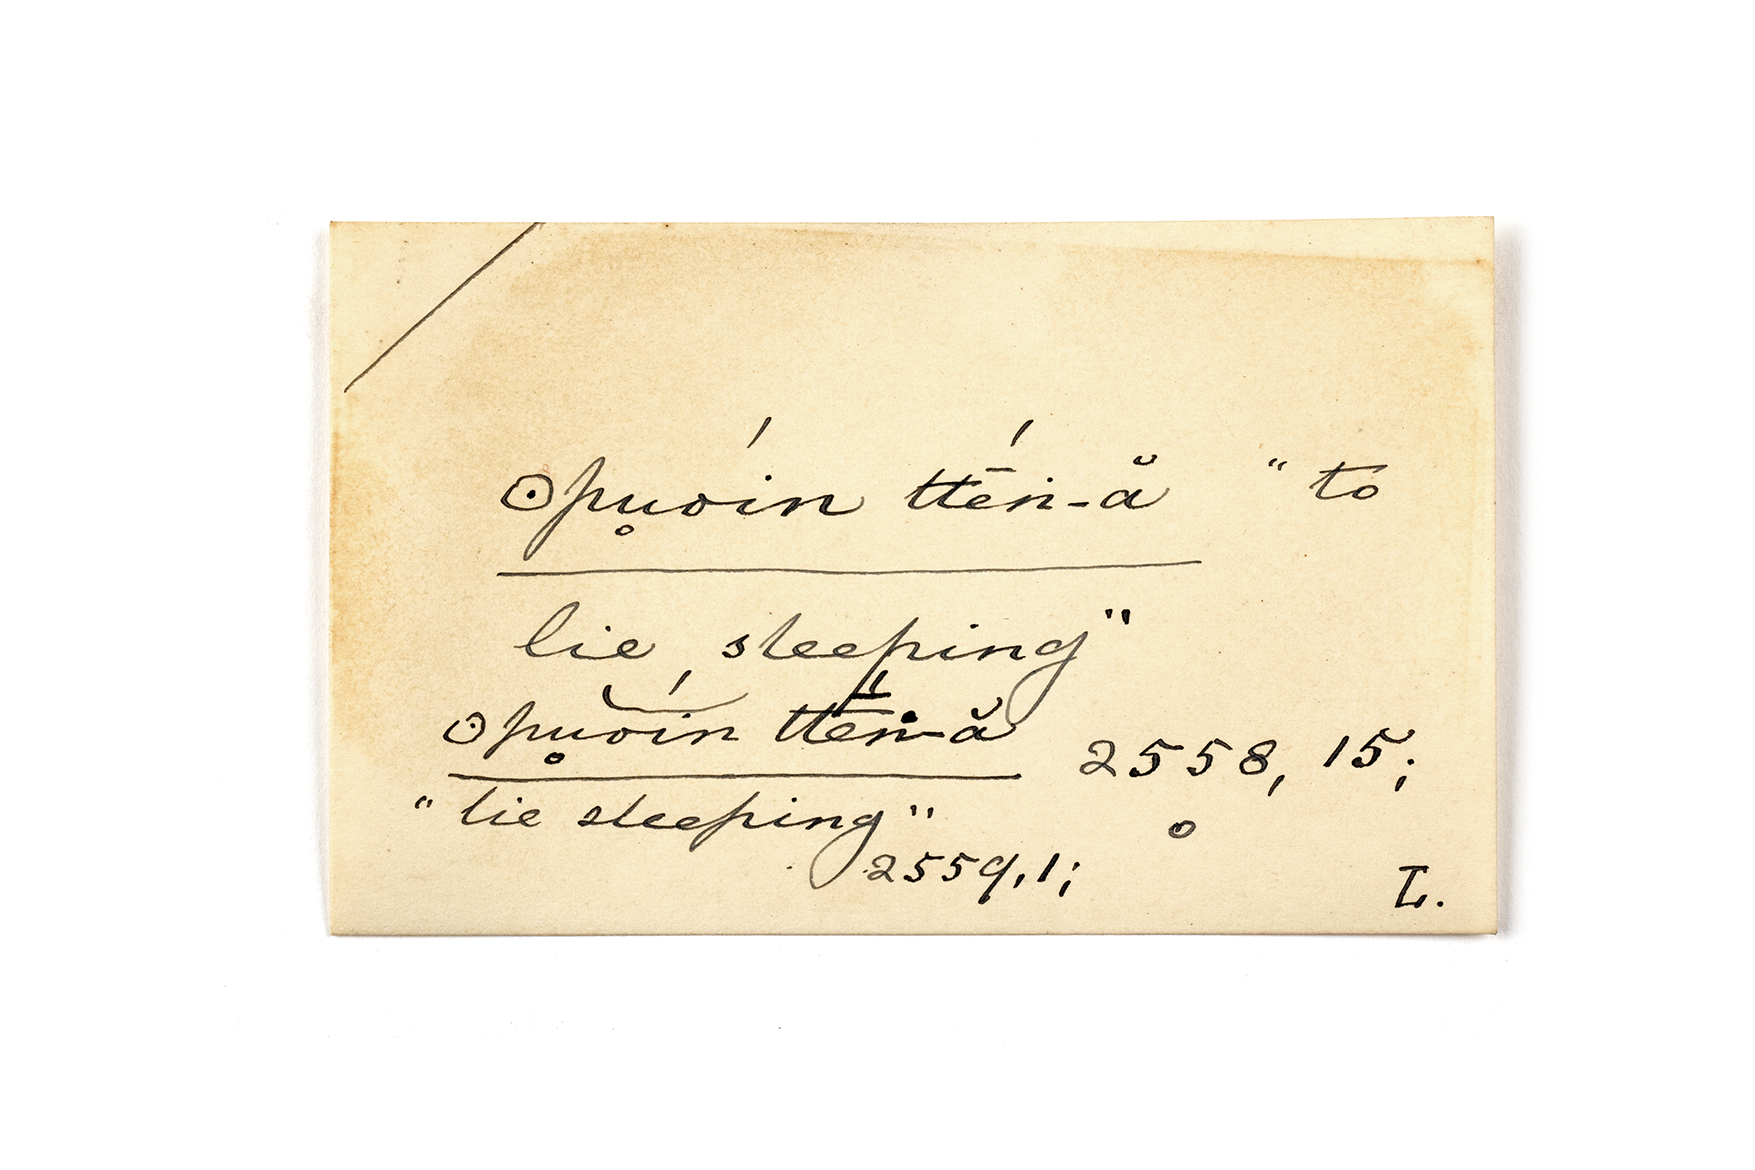 ʘpu̥óin ttḗn-ă "to
lie sleeping"
ʘpu̥óin ttḗn-ă 2558, 15;
"lie sleeping"
2559, 1;
L.